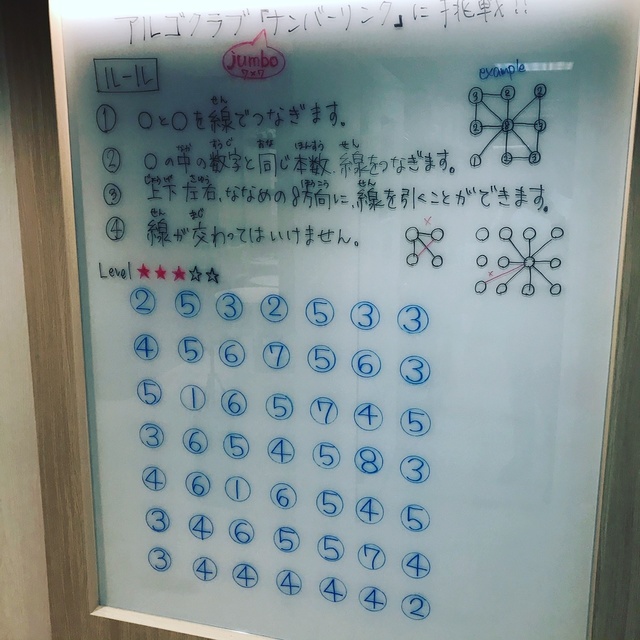 アルゴクラブ『ナンバーリンク』に挑戦!!
jumbo
7×7
ルール
example
① ○と○を線でつなぎます。
② ○の中の数字と同じ本数、線をつなぎます。
③ 上下左右、ななめの8方向に、線を引くことができます。
④ 線が交わってはいけません。
Level ★★★☆☆
2 5 3 2 5 3 3
4 5 6 7 5 6 3
5 1 6 5 7 4 5
3 6 5 4 5 8 3
4 6 1 6 5 4 5
3 4 6 5 5 7 4
3 4 4 4 4 4 2